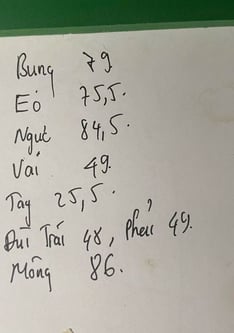 Bụng 79
Eo 75,5.
Ngực 84,5.
Vai 49.
Tay 25,5.
Đùi Trái 48, phải 49.
Mông 86.